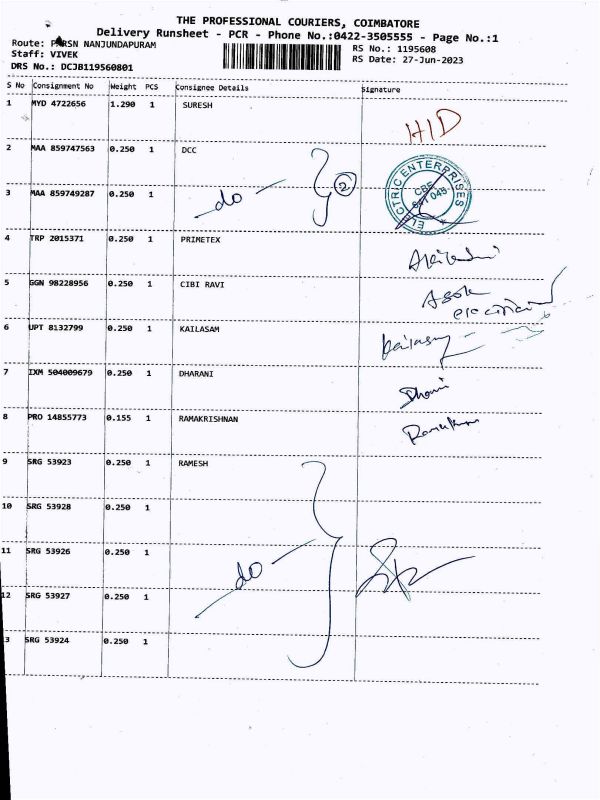 THE PROFESSIONAL COURIERS, COIMBATORE
Delivery Runsheet - PCR - Phone No.:0422-3505555 - Page No.:1
Route: PARSN NANJUNDAPURAM
Staff: VIVEK
DRS No.: DCJB119560801
RS No.: 1195608
RS Date: 27-Jun-2023
S No Consignment No Weight PCS Consignee Details Signature
1 MYD 4722656 1.290 1 SURESH HID
2 MAA 859747563 0.250 1 DCC
3 MAA 859749287 0.250 1 -do- 2
ELECTRIC ENTERPRISES
CBE
641 045
4 TRP 2015371 0.250 1 PRIMETEX
5 GGN 98228956 0.250 1 CIBI RAVI Asok
electrician
6 UPT 8132799 0.250 1 KAILASAM Kailasam
7 IXM 504009679 0.250 1 DHARANI
8 PRO 14855773 0.155 1 RAMAKRISHNAN
9 SRG 53923 0.250 1 RAMESH
10 SRG 53928 0.250 1
11 SRG 53926 0.250 1 -do-
12 SRG 53927 0.250 1
3 SRG 53924 0.250 1